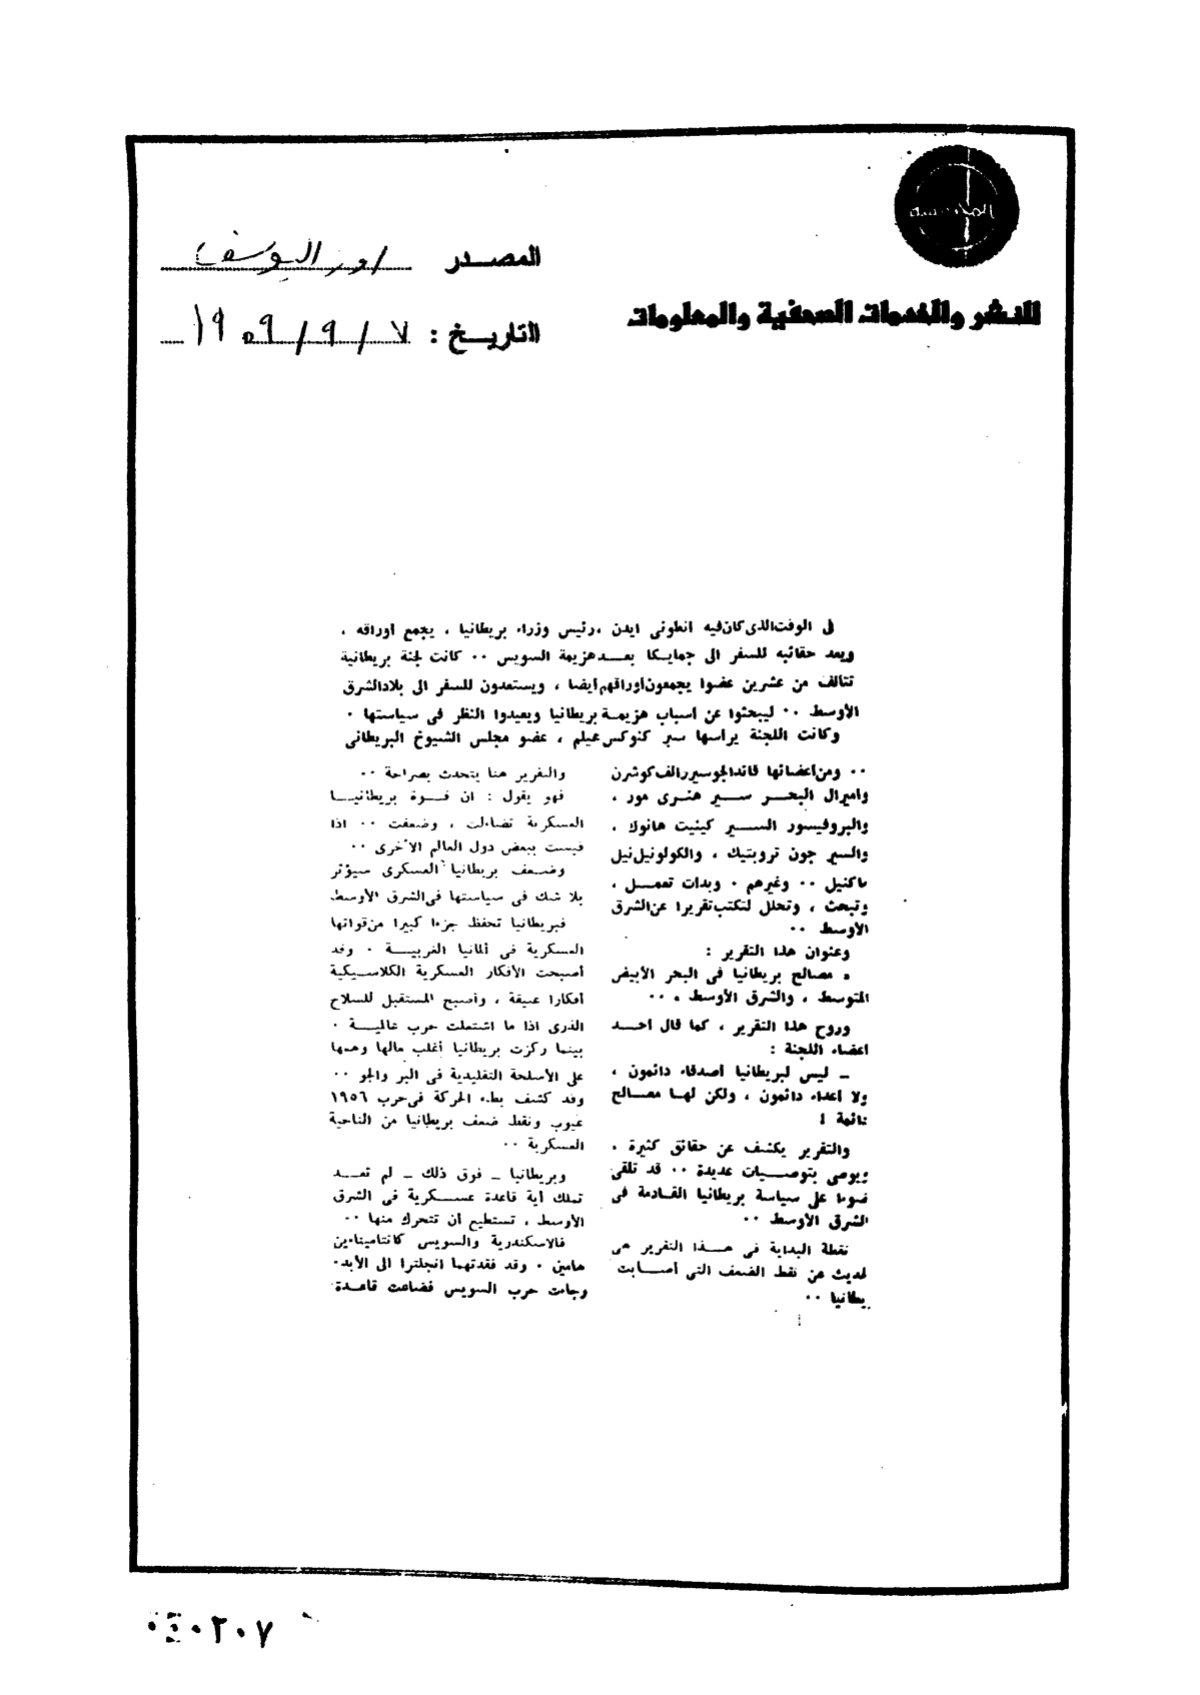 المصدر روز اليوسف
للنشر والخدمات الصحفية والمعلومات
التاريخ : ٧ / ٩ / ١٩٥٩
فى الوقت الذى كان فيه انطونى ايدن ، رئيس وزراء بريطانيا ، يجمع اوراقه ،
ويعد حقائبه للسفر الى جمايكا بعـــد هزيمة السويس ٠٠ كانت لجنة بريطانية
تتالف من عشرين عضوا يجمعون اوراقهم ايضا ، ويستعدون للسفر الى بلاد الشرق
الأوسط ٠٠ ليبحثوا عن اسباب هزيمـة بريطانيا ويعيدوا النظر فى سياستها ٠
وكانت اللجنة يراسها سير كنوكس هيلم ، عضو مجلس الشيوخ البريطانى
٠٠ ومن أعضائها قائد الجو سير رالف كوشرن
واميرال البحـــر ســـير هنـرى مور ،
والبروفيسور الســـير كينيت هانوك ،
والسير جون تروبتيك ، والكولونيل نيل
ماكنيل ٠٠ وغيرهم ٠ وبدات تعمـــل ،
وتبحث ، وتحلل لتكتب تقريرا عن الشرق
الأوسط ٠٠
وعنوان هذا التقرير :
« مصالح بريطانيا فى البحر الأبيض
المتوسط ، والشرق الأوسط » ٠٠
وروح هذا التقرير ، كما قال احـــد
اعضاء اللجنة :
ــ ليس لبريطانيا اصدقاء دائمون ،
ولا اعداء دائمون ، ولكن لهـا مصـــالح
دائمة !
والتقرير يكشف عن حقائق كثيرة ،
ويوصى بتوصـــيات عديدة ٠٠ قد تلقى
ضوءا على سياسة بريطانيا القـادمة فى
الشرق الأوسط ٠٠
نقطة البداية فى هـــذا التقرير هى
لحديث عن نقط الضعف التى أصـــابت
يطانيا ٠٠
والتقرير هنا يتحدث بصراحة ٠٠
فهو يقول : ان قـــوة بريطانيـــا
العسكرية تضاءلت ، وضعفت ٠٠ اذا
قيست ببعض دول العالم الأخرى ٠٠
وضـعف بريطانيا العسكرى سيؤثر
بلا شك فى سياستها فى الشرق الأوسط
فبريطانيا تحفظ جزءا كبيرا من قواتها
العسكرية فى ألمانيا الغربيـــة ٠ وقد
أصبحت الأفكار العسكرية الكلاسـيكية
أفكارا عتيقة ، وأصبح المستقبل للسلاح
الذرى اذا ما اشتعلت حرب عالميـــة ٠
بينما ركزت بريطانيا أغلب مالها وهمها
على الأسلحة التقليدية فى البر والجو ٠٠
وقد كشف بطء الحركة فى حرب ١٩٥٦
عيوب ونقط ضعف بريطانيا من الناحية
العسكرية ٠٠
وبريطانيا ــ فوق ذلك ــ لم تعـــد
تملك أية قاعدة عســـكرية فى الشرق
الأوسط ، تستطيع أن تتحرك منها ٠٠
فالاسكندرية والسويس كانتا ميناءين
هامين ٠ وقد فقدتهما انجلترا الى الأبد٠
وجاءت حرب السويس فضاعت قاعـدة